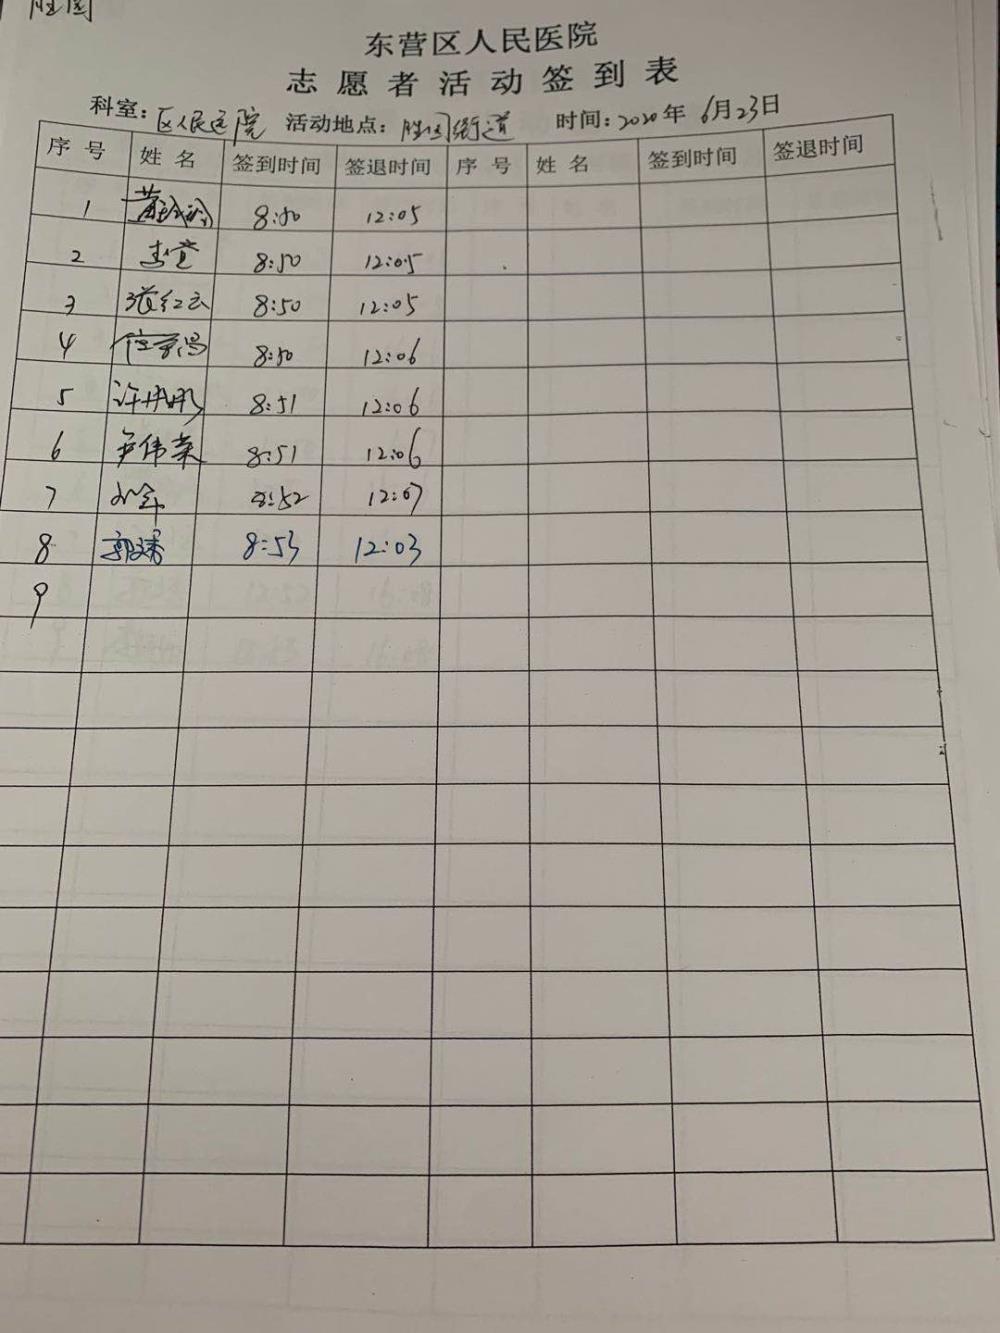 胜园
东营区人民医院
志愿者活动签到表
科室：区人民医院 活动地点：胜园街道 时间：2020年6月23日
序号 姓名 签到时间 签退时间 序号 姓名 签到时间 签退时间
1 8:50 12:05
2 8:50 12:05
3 张红云 8:50 12:05
4 8:50 12:06
5 8:51 12:06
6 尹伟荣 8:51 12:06
7 8:52 12:07
8 8:53 12:03
9